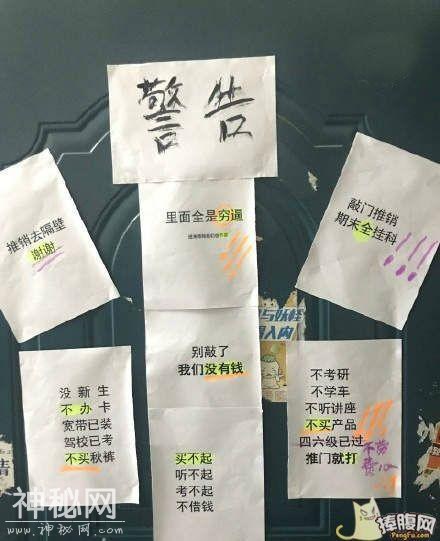 警告
推销去隔壁
谢谢
里面全是穷逼
敲门推销
期末全挂科
!!!
别敲了
我们没有钱
没新生
不办卡
宽带已装
驾校已考
不买秋裤
买不起
听不起
考不起
不借钱
不考研
不学车
不听讲座
不买产品
四六级已过
推门就打
不劳
费心
神秘网
www.神秘网.com
捧腹网
PengFu.com